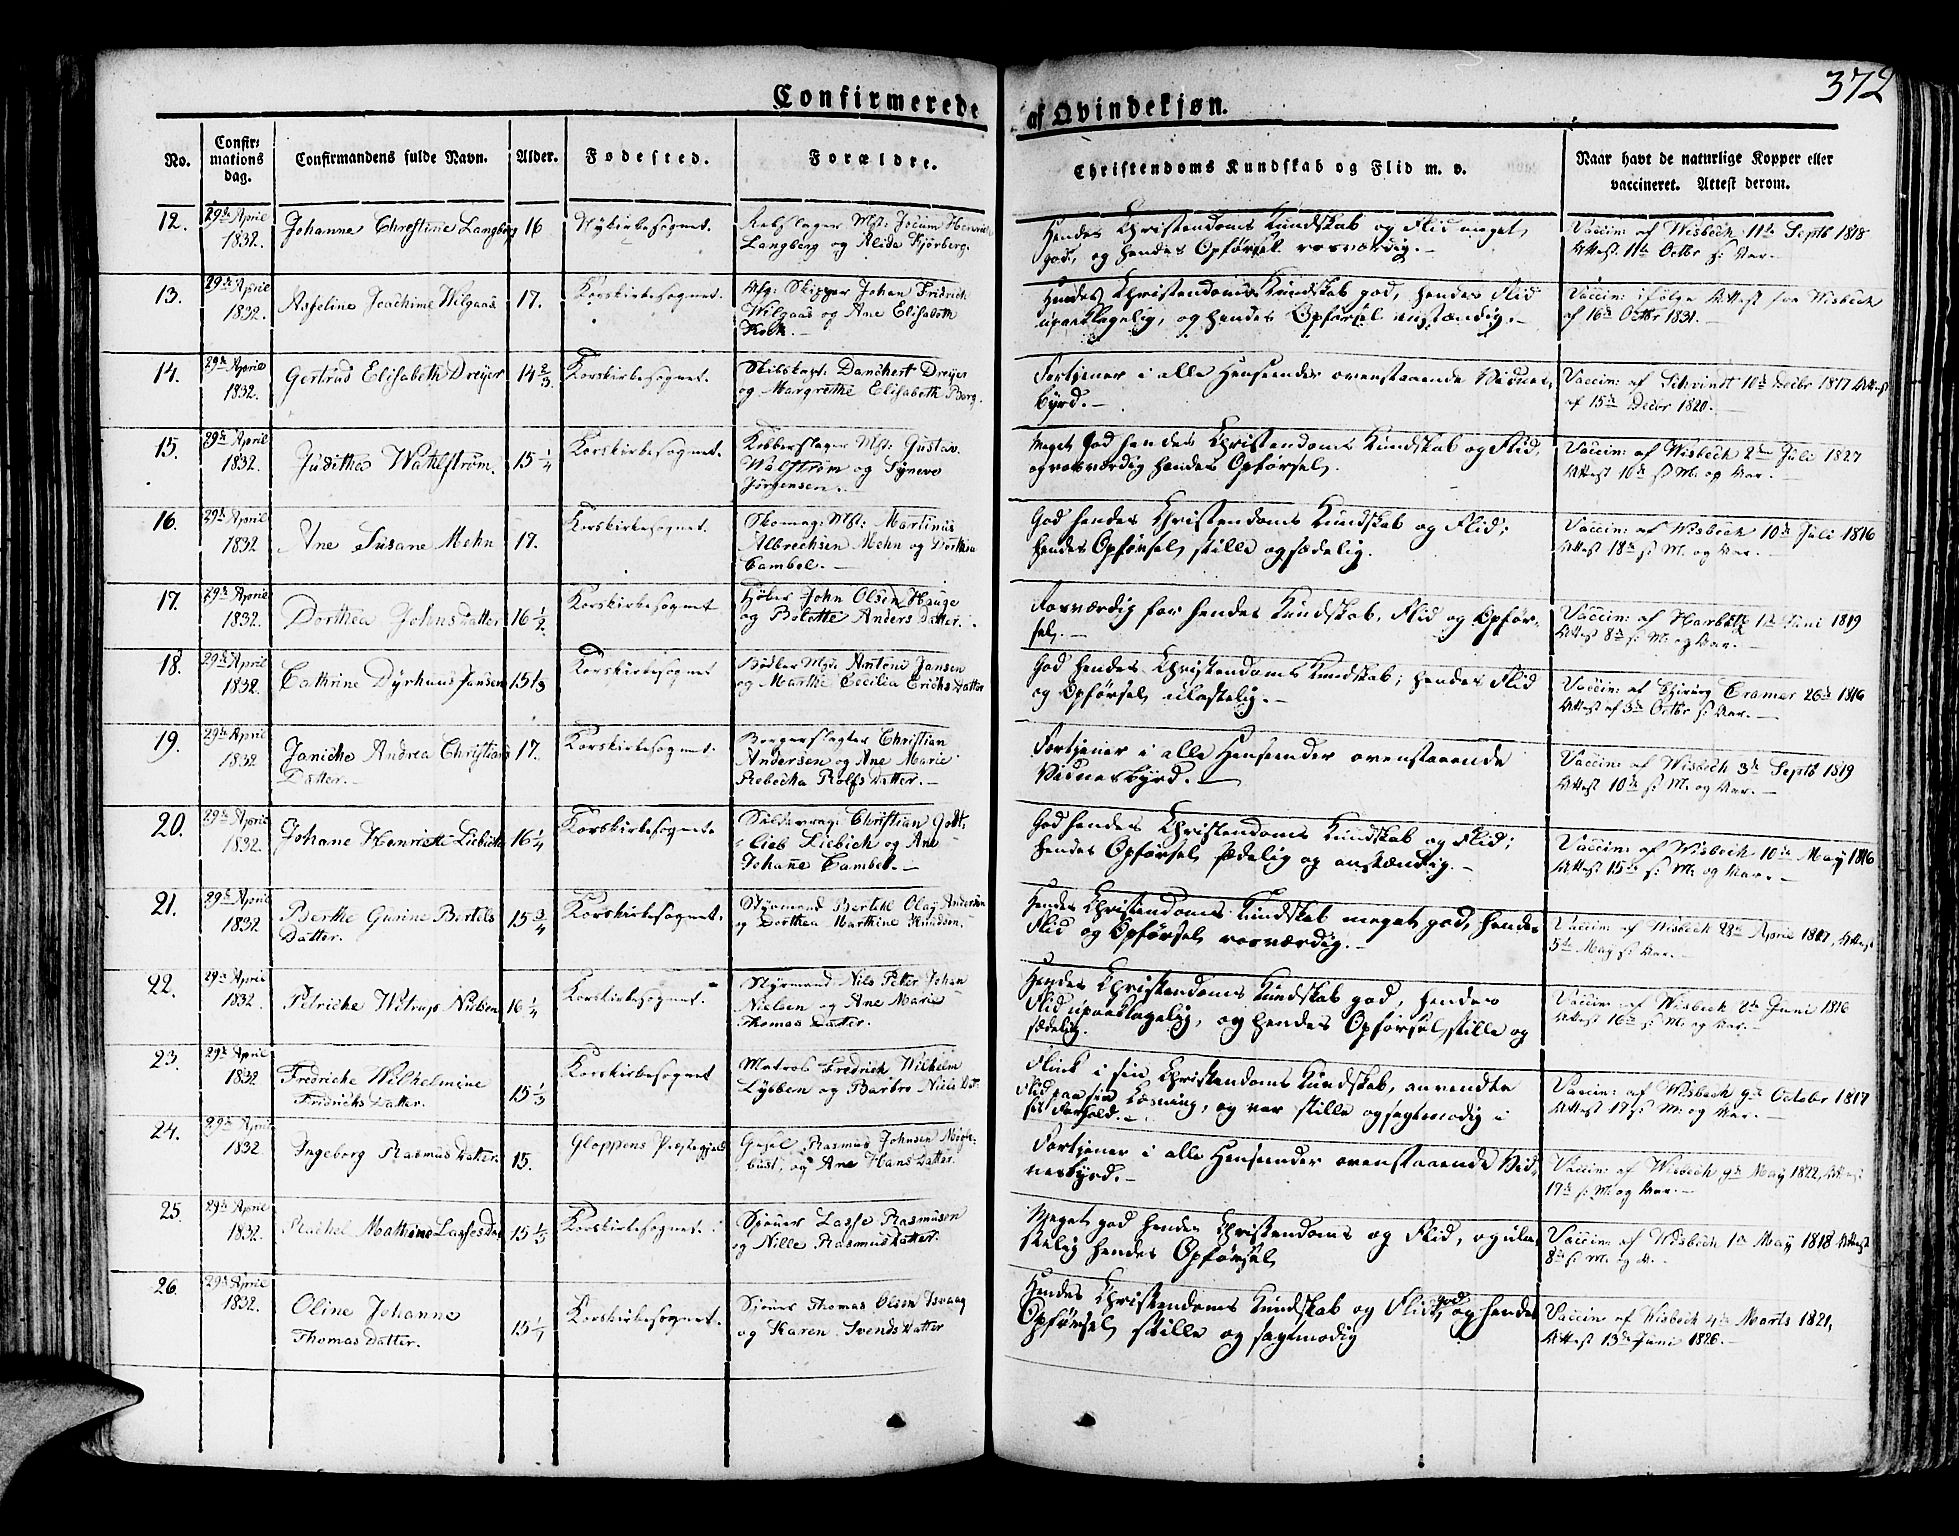 372
Confirmerede af Qvindekjøn.
No.
Confir-
mations
dag.
Confirmandens fulde Navn.
Alder.
Fødested.
Forældre.
Christendoms Kundskab og Flid m. v.
Naar havt de naturlige Kopper eller
vaccineret. Attest derom.
12. 29de April 1832. Johanne Christine Langberg 16 Nykirkesognet. Rebslager Mst: Jocum Henrich
Langberg og Alida Kjørberg.
Hendes Christendoms Kundskab og Flid meget
god, og hendes Opførsel rosværdig.
Vaccin: af Wisbech 11te Septb 1818
Attest 11te Octbr s: Aar.
13. 29de April 1832. Joachime Wilgaas 17. Korskirkesognet. Afg: Skipper Johan Fridrich
Wilgaas og Ane Elisabeth
Koch.
Hendes Christendoms Kundskab god, hendes Flid
upaaklagelig, og hendes Opførsel anstændig.
Vaccin: ifølge Attest fra Wisbech
af 16de Octbr 1831.
14. 29de April 1832. Gertrud Elisabeth Dreyer 14 2/3 Korskirkesognet. Skibskapt: Danchert Dreyer
og Margrethe Elisabeth Berg.
Fortjener i alle Henseender ovenstaaende Vidnes-
byrd.
Vaccin: af Schvindt 10de Decbr 1817 Attest
af 15de Decbr 1820.
15. 29de April 1832. Judithe Wahlstrøm. 15 1/4 Korskirkesognet. Kobberslager Mst: Gustav
Walstrøm og Synove
Jørgensen.
Meget god hendes Christendoms Kundskab og Flid,
og rosværdig hendes Opførsel.
Vaccin: af Wisbech 2den Juli 1827
Attest 10de s: M. og Aar.
16. 29de April 1832 Ane Susane Mehn 17. Korskirkesognet. Skomag: Mst: Martinus
Albrechsen Mehn og Dorthea
Cambel.
God hendes Christendoms Kundskab og Flid;
hendes Opførsel stille og sædelig.
Vaccin: af Wisbech 10de Juli 1816
Attest 18de s: M. og Aar.
17. 29de April 1832. Dorthea Johns Datter 16 1/2. Korskirkesognet John Olsen Hauge
og Bolette Anders Datter.
Rosværdig for hendes Kundskab, Flid og Opfør-
sel.
Vaccin: af 1te Juni 1819
Attest 8de s: M. og Aar.
18. 29de April 1832. Cathrine Dyrhuus Jansen 15 1/3 Korskirkesognet Bødker Mst: Antoni Jansen
og Marthe Cecilia Erichs Datter
God hendes Christendoms Kundskab; hendes Flid
og Opførsel ulastelig.
Vaccin: af Chirurg Cramer 26de 1816
Attest af 3de Octbr s: Aar.
19. 29de April 1832 Janiche Andrea Christians
Datter. 17. Korskirkesognet. Borgerslagter Christian
Andersen og Ane Marie
Rebecha Rolfs Datter.
Fortjener i alle Henseender ovenstaaende
Vidnesbyrd.
Vaccin: af Wisbech 3de Septb 1819
Attest 10de s: M. og Aar.
20. 29de April 1832. Johane Henriette Liebich 16 1/4 Korskirkesognet. Christian Gott-
lieb Liebich og Ane
Johane Cambel.
God hendes Christendoms Kundskab og Flid;
hendes Opførsel sædelig og anstændig.
Vaccin: af Wisbech 10de May 1816
Attest 15de s: M. og Aar.
21. 29de April 1832. Berthe Gurine Bertels
Datter. 15 3/4 Korskirkesognet. Styrmand Bertehl Olay Andersen
og Dorthea Marthine Knudsen.
Hendes Christendoms Kundskab meget god, hendes
Flid og Opførsel rosværdig.
Vaccin: af Wisbech 28de April 1817, Attest
5te May s: Aar.
22. 29de April 1832. Petriche Witrup Nielsen 16 1/4 Korskirkesognet. Styrmand Nils Petter Johan
Nielsen og Ane Marie
Thomas Datter.
Hendes Christendoms Kundskab god, hendes
Flid upaaklagelig, og hendes Opførsel stille og
sædelig.
Vaccin: af Wisbech Juni 1816
Attest 16de s: M. og Aar.
23. 29de April 1832 Fredriche Wilhelmine
Fredrichs Datter. 15 1/3 Korskirkesognet Matros Fredrich Wilhelm
Lybben og Barbro Niels Dt.
Flink i sin Christendoms Kundskab, anvendte
Flid paa sin Læsning, og var stille og sagtmodig i
sit Forhold.
Vaccin: af Wisbech 9de October 1817
Attest 17de s: M. og Aar.
24. 29de April 1832. Ingeborg Rasmus Datter. 15. Gloppens Præstegjeld Rasmus Johnsen
og Ane Hans Datter.
Fortjener i alle Henseender ovenstaaende Vid-
nesbyrd.
Vaccin: af Wisbech 9de May 1822, Attest
17de s: M. og Aar.
25. 29de April 1832. Rachel Mathine Lasses Dat. 15 1/3 Korskirkesognet. Sjøuer Lasse Rasmusen
og Nille Rasmus Datter.
Meget god hendes Christendoms og Flid, og ula-
stelig hendes Opførsel
Vaccin: af Wisbech May 1818 Attest
8de s: M. og A.
26. 29de April 1832. Oline Johanne
Thomas Datter. 15 1/4 Korskirkesognet. Sjøuer Thomas Olsen
og Karen Svends Datter
Hendes Christendoms Kundskab og Flid god og hendes
Opførsel stille og sagtmodig
Vaccin: af Wisbech 4de Marts 1821,
Attest 13de Juni 1826.